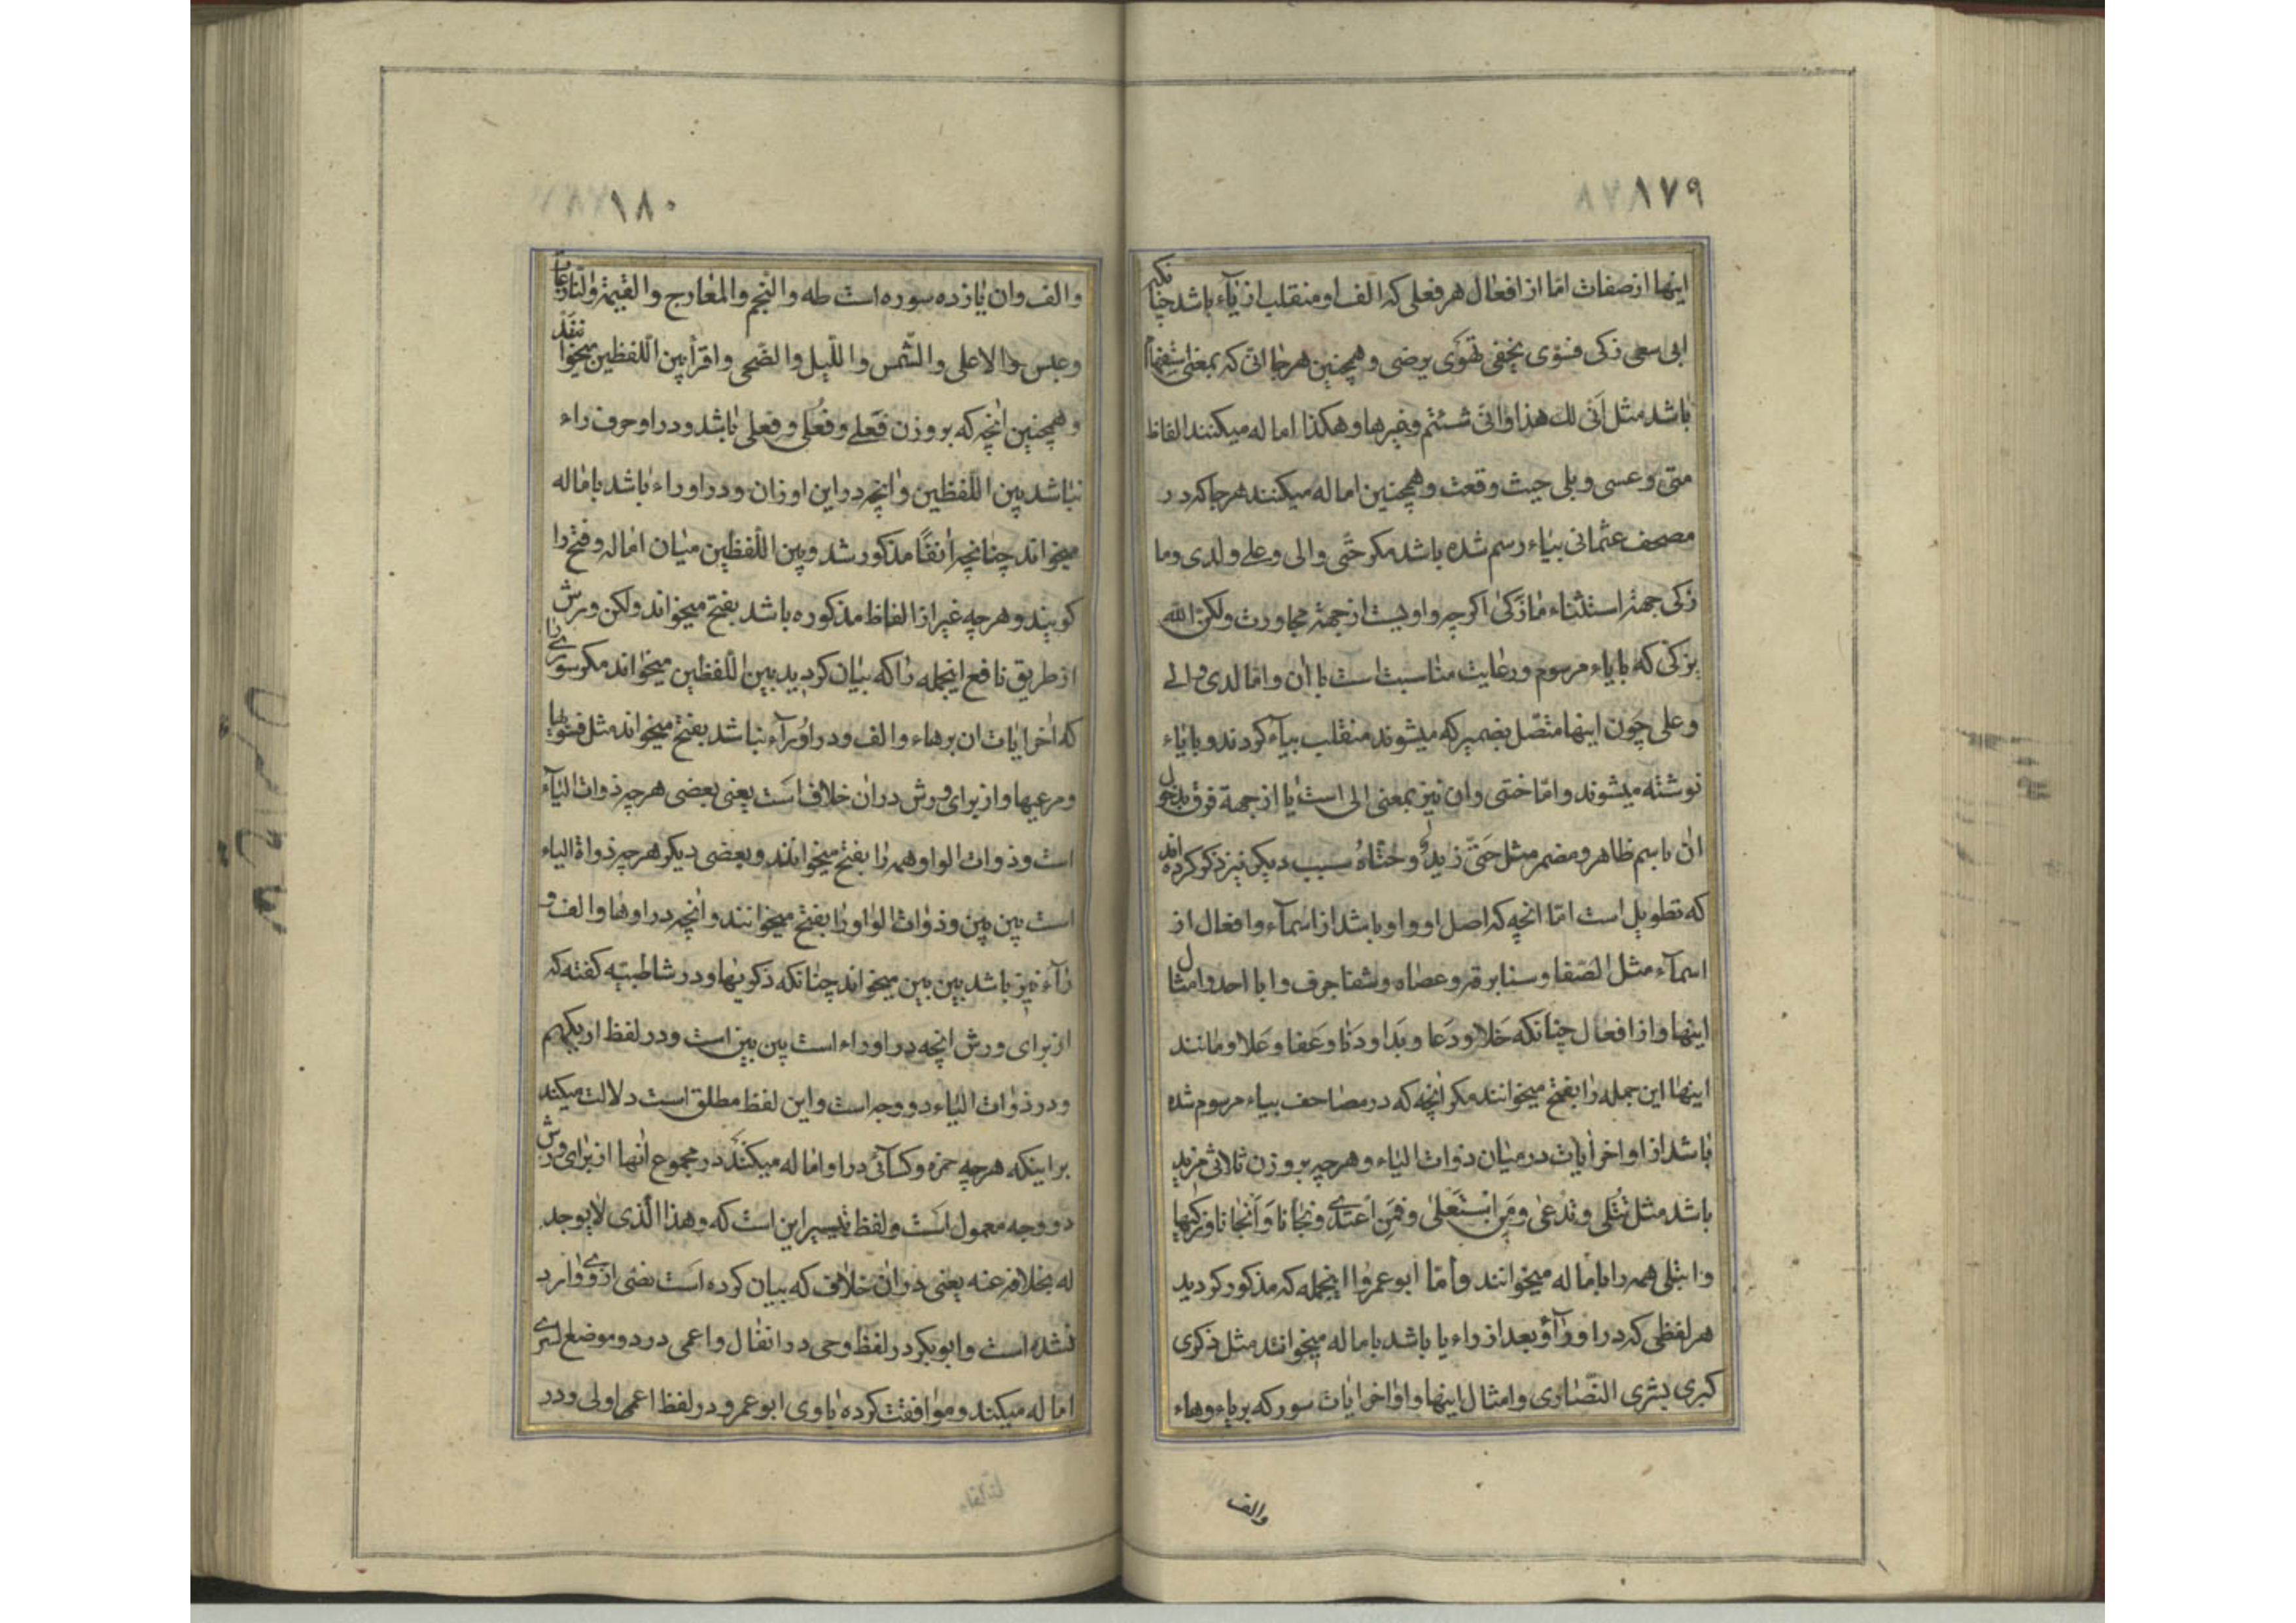 ١٧٩
اینها از صفات امّا از افعال هر فعلی که الف او منقلب از یآء باشد چنانکه
ابی سعی زکی فسوّی یخفی تهوی یرضی و همچنین هر جا انّی که بمعنی استفهام
باشد مثل اَنّی لك هذا و انّی شئتم و غیرها و هکذا اماله میکنند الفاظ
متی و عسی و بلی حیث وقعت و همچنین اماله میکنند هر جا که در
مصحف عثمانی بیاء رسم شده باشد مکر حتّی والی و علی و لدی و ما
زکی جهة استثناء مٰا زَکیٰ اکر چه واویست از جهة مجاورت ولکنّ الله
یزکّی که بایاء مرسوم و رعایت مناسبت است با ان و امّا لدی و الی
و علی چون اینها متّصل بضمیر که میشوند منقلب بیآء کردند و بایاء
نوشته میشوند و امّا حتّی و ان نیز بمعنی الی است یا از جهة فرق بدخول
ان باسم ظاهر و مضمر مثل حَتّی زیدٍ و حتّاهُ سبب دیکر نیز ذکر کرده اند
که تطویل است امّا انچه که اصل او واو باشد از اسمآء و افعال از
اسمآء مثل الصّفا و سنا برقه و عصاه و شفا جرف و ابا احد و امثال
اینها و از افعال چنانکه خَلا و دَعا و بَدا و دَنا و عَفا و عَلا و مانند
اینها این جمله را بفتح میخوانند مکر انچه که در مصاحف بیاء مرسوم شده
باشد از اواخر ایات در میان ذوات الیاء و هر چه بر وزن ثلاثی مزید
باشد مثل تُتلی و تُدعی و مَنِ اسْتَعْلیٰ و فَمَنِ اعْتَدی و نجّانا و اَنجانا و زکّیها
و ابتلی همه را باماله میخوانند و امّا ابو عمرو از اینجمله که مذکور کردید
هر لفظی که در او رآء و بعد از راء یا باشد باماله میخوانند مثل ذکری
کبری بشری النّصاری و امثال اینها و اواخر ایات سور که بر یاء و هاء
والف
١٨٠
والف و ان یازده سوره است طه والنّجم والمعارج والقیمة والنّازعات
و عبس والاعلی والشّمس واللّیل والضّحی و اقرأ بین اللّفظین میخوانند
و همچنین انچه که بر وزن فَعلی و فُعلی و فِعلی باشد و در او حرف راء
نباشد بین اللّفظین و انچه در این اوزان و در او راء باشد باماله
میخواند چنانچه أنفًا مذکور شد و بین اللّفظین میان اماله و فتح را
کویند و هر چه غیر از الفاظ مذکوره باشد بفتح میخواند ولکن ورش
از طریق نافع اینجمله را که بیان کردید بین اللّفظین میخواند مکر سوری را
که اخر ایات ان بر هاء و الف و در او رآء نباشد بفتح میخواند مثل فسوّیها
و مرعیها و از برای ورش در ان خلاف است یعنی بعضی هر چه ذوات الیآء
است و ذوات الواو همه را بفتح میخوانند و بعضی دیکر هر چه ذواة الیاء
است بین بین و ذوات الواو را بفتح میخوانند و انچه در او ها و الف و
رآء نیز باشد بین بین میخواند چنانکه ذکریها و در شاطبیّه کفته که
از برای ورش انچه در او راء است بین بین است و در لفظ اریکهم
و در ذوات الیاء دو وجه است و این لفظ مطلق است دلالت میکند
بر اینکه هر چه حمزه و کسآئی در او اماله میکنند در مجموع انها از برای ورش
دو وجه معمول است و لفظ تیسیر این است که و هذا الّذی لا یوجد
له بخلافه عنه یعنی در ان خلاف که بیان کرده است نصّی از وی وارد
نشده است و ابو بکر در لفظ رمی در انفال و اعمی در دو موضع اسری
اماله میکند و موافقت کرده با وی ابو عمرو در لفظ اعمی اولی و در